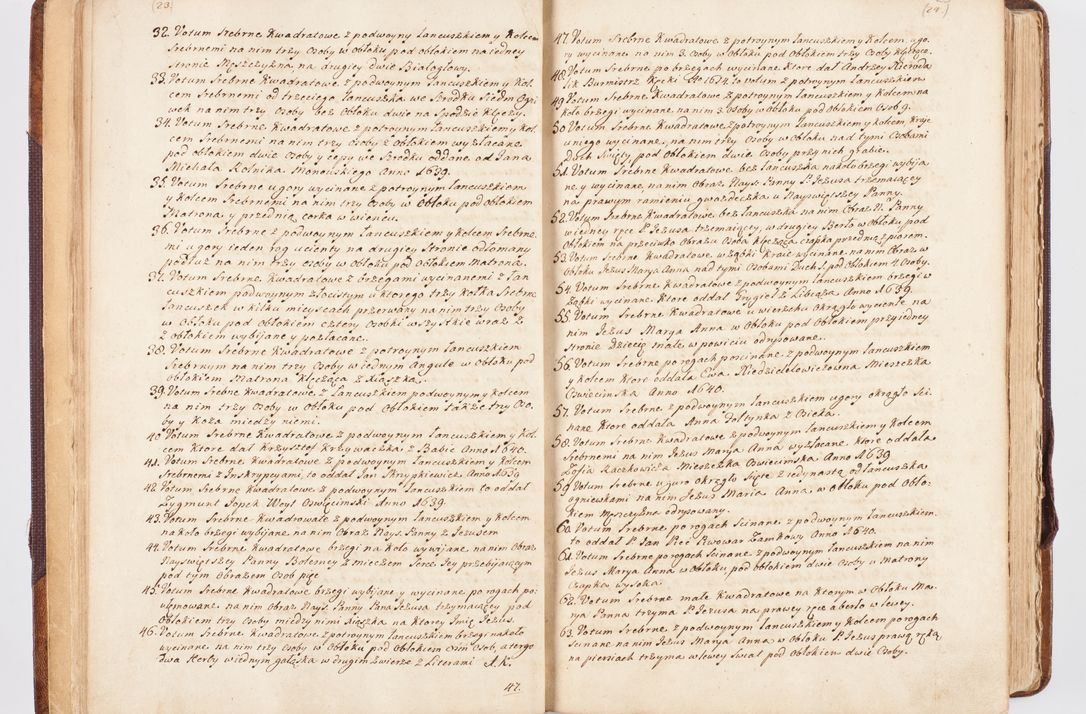 (23.)
32. Votum Srebrne Kwadratowe z podwoyny Lancuszkiem y Kolcem
Srebrnemi na nim trzy Osoby w Obłoku pod obłokiem na iedney
Stronie Męszczyzna na drugiey dwie Białogłowy.
33. Votum Srebrne Kwadratowe z podwoynym Lancuszkiem y Kol-
cem Srebrnemi od trzeciego Lancuszka we Srodku Siedm Ogni
wek na nim trzy Osoby bez Obłoku dwie na Spodzie Klęczy.
34. Votum Srebrne Kwadratowe z potroynym Lancuszkiem y Kol
cem Srebrnemi na nim trzy Osoby z Obłokiem wyzłacane
pod obłokiem dwie Osoby y czepu we Srodku oddane od Jana
Michała Rolnika Monowskiego Anno 1639.
35. Votum Srebrne u gory wycinane z potroynym Lancuszkiem
y Kolcem Srebrnemi na nim trzy Osoby w Obłoku pod obłokiem
Matrona y przednią corka w wiencu.
36. Votum Srebrne z podwoynym Lancuszkiem y Kolcem Srebrne
mi u gory ieden rog ucienty na drugiey Stronie Odłomany
podłuż na nim trzy osoby w Obłoku pod obłokiem Matrona.
37. Votum Srebrne Kwadratowe z brzegami wyginanemi z Łan
cuszkiem podwoynym złocistym u ktorego trzy Kołka Srebrne
Lancuszek w kilku mieyscach przerwany na nim trzy Osoby
w Obłoku pod Obłokiem cztery Osobki wszystkie wraz z
z obłokiem wybijane y pozłacane.
38. Votum Srebrne Kwadratowe z potroynym Lancuszkiem
Srebrnym na nim trzy Osoby w iednum Angule w Obłoku pod
obłokiem Matrona Klęcząca z Xiąszką.
39. Votum Srebne Kwadratowe z Lancuszkiem podwoynym y Kolcem
na nim trzy Osoby w Obłoku pod Obłokiem także try Oso
by y Koza miedzy niemi.
40. Votum Srebrne Kwadratowe z podwoynym Lancuszkiem y Kol
cem Ktore dał Krzysztof Krzywaczka z Babic Anno 1640.
41. Votum Srebrne Kwadratowe z podwoynym Lancuszkiem y Kolcem
Srebrnemi z Inskrypcyami, to oddał Jan Skrypkiewicz Anno 1639
42. Votum Srebrne Kwadratowe z podwoynym Lancuszkiem to oddał
Zygmunt Jopek Woyt Oswięcimski Anno 1639.
43. Votum Srebrne Kwadrowale z podwoynym Lancuszkiem y Kolcem
na koło brzegi wybijane na nim Obraz Nays. Panny z Jezusem
44. Votum Srebrne Kwadratowe brzegi na koło wywijane na nim Obraz
Nayswiętszey Panny Bolesney z mieczem Serce Jey przebijającym
pod tym Obrazem Osob pięc
45. Votum Srebrne Kwadratowe brzegi wybijane y wycinane po rogach po
ubinowane na nim Obraz Nays. Panny Pana Jezusa trzymaiący pod
obłokiem trzy Osoby miedzy nimi Xiąszka na Ktorey Imię Jezus.
46. Votum Srebrne Kwadratowe z potroynym Lancuszkiem brzegi nakoło
wycinane na nim trzy Osoby w Obłoku pod Obłokiem Osm Osob, a tergo
dwa Herby w iednym gałąska w drugim Zwierze z Literami A.K.
47.
(24.)
47. Votum Srebrne Kwadratowe z potroynym Lancuszkiem y Kolcem u go-
ry wycinane na nim 3. Osoby w Obłoku pod Obłokiem trzy Osoby Klęczące.
48. Votum Srebrne po brzegach wycinane Ktore dał Andrzey Nieroda
Sik Burmistrz Kęcki Ao 1674. To votum z potroynym Lancuszkiem
49. Votum Srebrne Kwadratowe z potroynym Lancuszkiem y Kolcem na
koło brzegi wycinane na nim 3. Osoby w Obłoku pod Obłokiem Osob 9.
50. Votum Srebrne Kwadratowe z potroynym Lancuszkiem y Kolcem Kraje
u niego wycinane, na nim trzy Osoby w Obłoku nad tymi Osobami
Duch Święty, pod Obłokiem dwie Osoby przy nich grabie.
51. Votum Srebrne Kwadratowe bez Lancuszka nakoło brzegi wybija
ne y wycinane na nim Obraz Nays. Panny P. Jezusa trzymaiącey
na prawym ramieniu gwiazdeczka u Nayswiętszey Panny
52. Votum Srebrne Kwadratowe bez Lancuszka na nim Obraz N. Panny
w iedney ręce P. Jezusa trzymaiącey, w drugiey Berło w Obłoku pod
Obłokiem na przeciwko Obrazu Osoba Klęcząca czapka przed nią z piorem.
53. Votum Srebrne Kwadratowe w ząbki Kraie wycinane na nim Obraz w
Obłoku Jezus Marya Anna nad tymi Osobami Duch S. pod Obłokiem 4 Osoby.
54. Votum Srebrne Kwadratowe z podwoynym Lancuszkiem brzegi w
ząbki wycinane Ktore oddał Grygiel z Libiąża Anno 1639.
55. Votum Srebrne Kwadratowe u wierzchu Okrągło wycięnte na
nim Jezus Marya Anna w Obłoku pod Obłokiem przy iedney
Stronie Dziecię małe w powiciu odrysowane.
56. Votum Srebrne po rogach poscinane z podwoynym Lancuszkiem
y kolcem Ktore oddała Ewa Niedzielelowiczowna Mieszczka
Oswięcimska Anno 1640.
57. Votum Srebrne z podwoynym Lancuszkiem u gory okrągło Sci-
nane Ktore oddała Anna Foltynka z Osieka.
58. Votum Srebrne Kwadratowe z podwoynym Lancuszkiem y Kolcem
Srebrnemi na nim Jezus Marya Anna wyzłacane Ktore oddała
Zofia Raczkowicka Mieszczka Oswięcimska Anno 1639
59. Votum Srebrne u gury okrągło Sięte z iedynastą od Lancuszka
ogniewkami na nim Jezus Maria Anna, w obłoku pod Obło-
kiem Męszczyzna odrysowany.
60. Votum Srebrne po rogach Scinane z podwoynym Lancuszkiem
to oddał P. Jan Rec Piwowar Zamkowy Anno 1640.
61. Votum Srebrne po rogach Scinane z podwoynym Lancuszkiem na nim
Jezus Marya Anna w Obłoku pod obłokiem dwie Osoby u Matrony
Czapka wysoka.
62. Votum Srebrne małe Kwadratowe na Ktorym w Obłoku Ma-
rya Panna trzyma P. Jezusa na prawey ręce a berło w lewey.
63. Votum Srebrne z podwoynym Lancuszkiem y Kolcem porogach
Scinane na nim Jezus Marya Anna w Obłoku P. Jezus prawą ręką
na piersiach trzyma w lewey Swiat pod Obłokiem dwie Osoby.